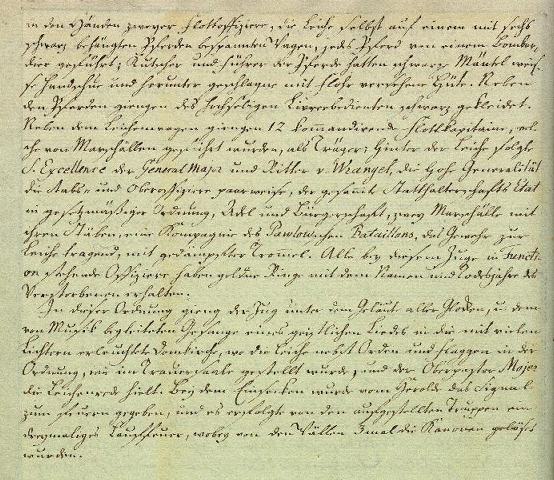 in den Händen zweyer Flottoffiziere, die Leiche selbst auf einem mit sechs
schwarz behängten Pferden bespannten Wagen, jedes Pferd von einem Bombar,,
dier geführt; Kutscher und Führer der Pferde hatten schwarze Mäntel weis,,
se Handschue und herunter geschlagne mit Flohr versehene Hüte. Neben
den Pferden giengen des Hochseligen Livreebedienten schwarz gekleidet.
Neben dem Leichenwagen giengen 12 komandirende Flottkapitaine, wel,,
che von Marschällen geführt wurden, als Träger; hinter der Leiche folgte
S. Excellence der General Major und Ritter v. Wrangel, die hohe Generalität
die Staabs- und Oberoffiziere paarweise, der gesamte Statthalterschafts Etat
in gesetzmäßiger Ordnung, Adel und Bürgerschaft, zwey Marschälle mit
ihren Stäben, eine Kompagnie des Pawlowschen Bataillons, das Gewehr zur
Leiche tragend, mit gedämpfter Tromel. Alle bey diesem Zuge in Functi-
on stehende Offiziere haben goldne Ringe mit dem Namen und Todesjahre des
Verstorbenen erhalten.
In dieser Ordnung gieng der Zug unter dem Geläute aller Glocken, u. dem
von Musik begleiteten Gesange eines geistlichen Liedes in die mit vielen
Lichtern erleuchtete Domkirche, wo die Leiche nebst Orden und Flaggen in der
Ordnung, wie im Trauersaale gestellt wurde, und der Oberpastor Mayer
die Leichenrede hielt. Bey dem Einsenken wurde vom Herolde das Signal
zum Feuren gegeben, und es erfolgte von den aufgestellten Truppen ein
dreymaliges Lauffeuer, wobey von den Wällen 3mal die Kanonen gelöset
wurden.